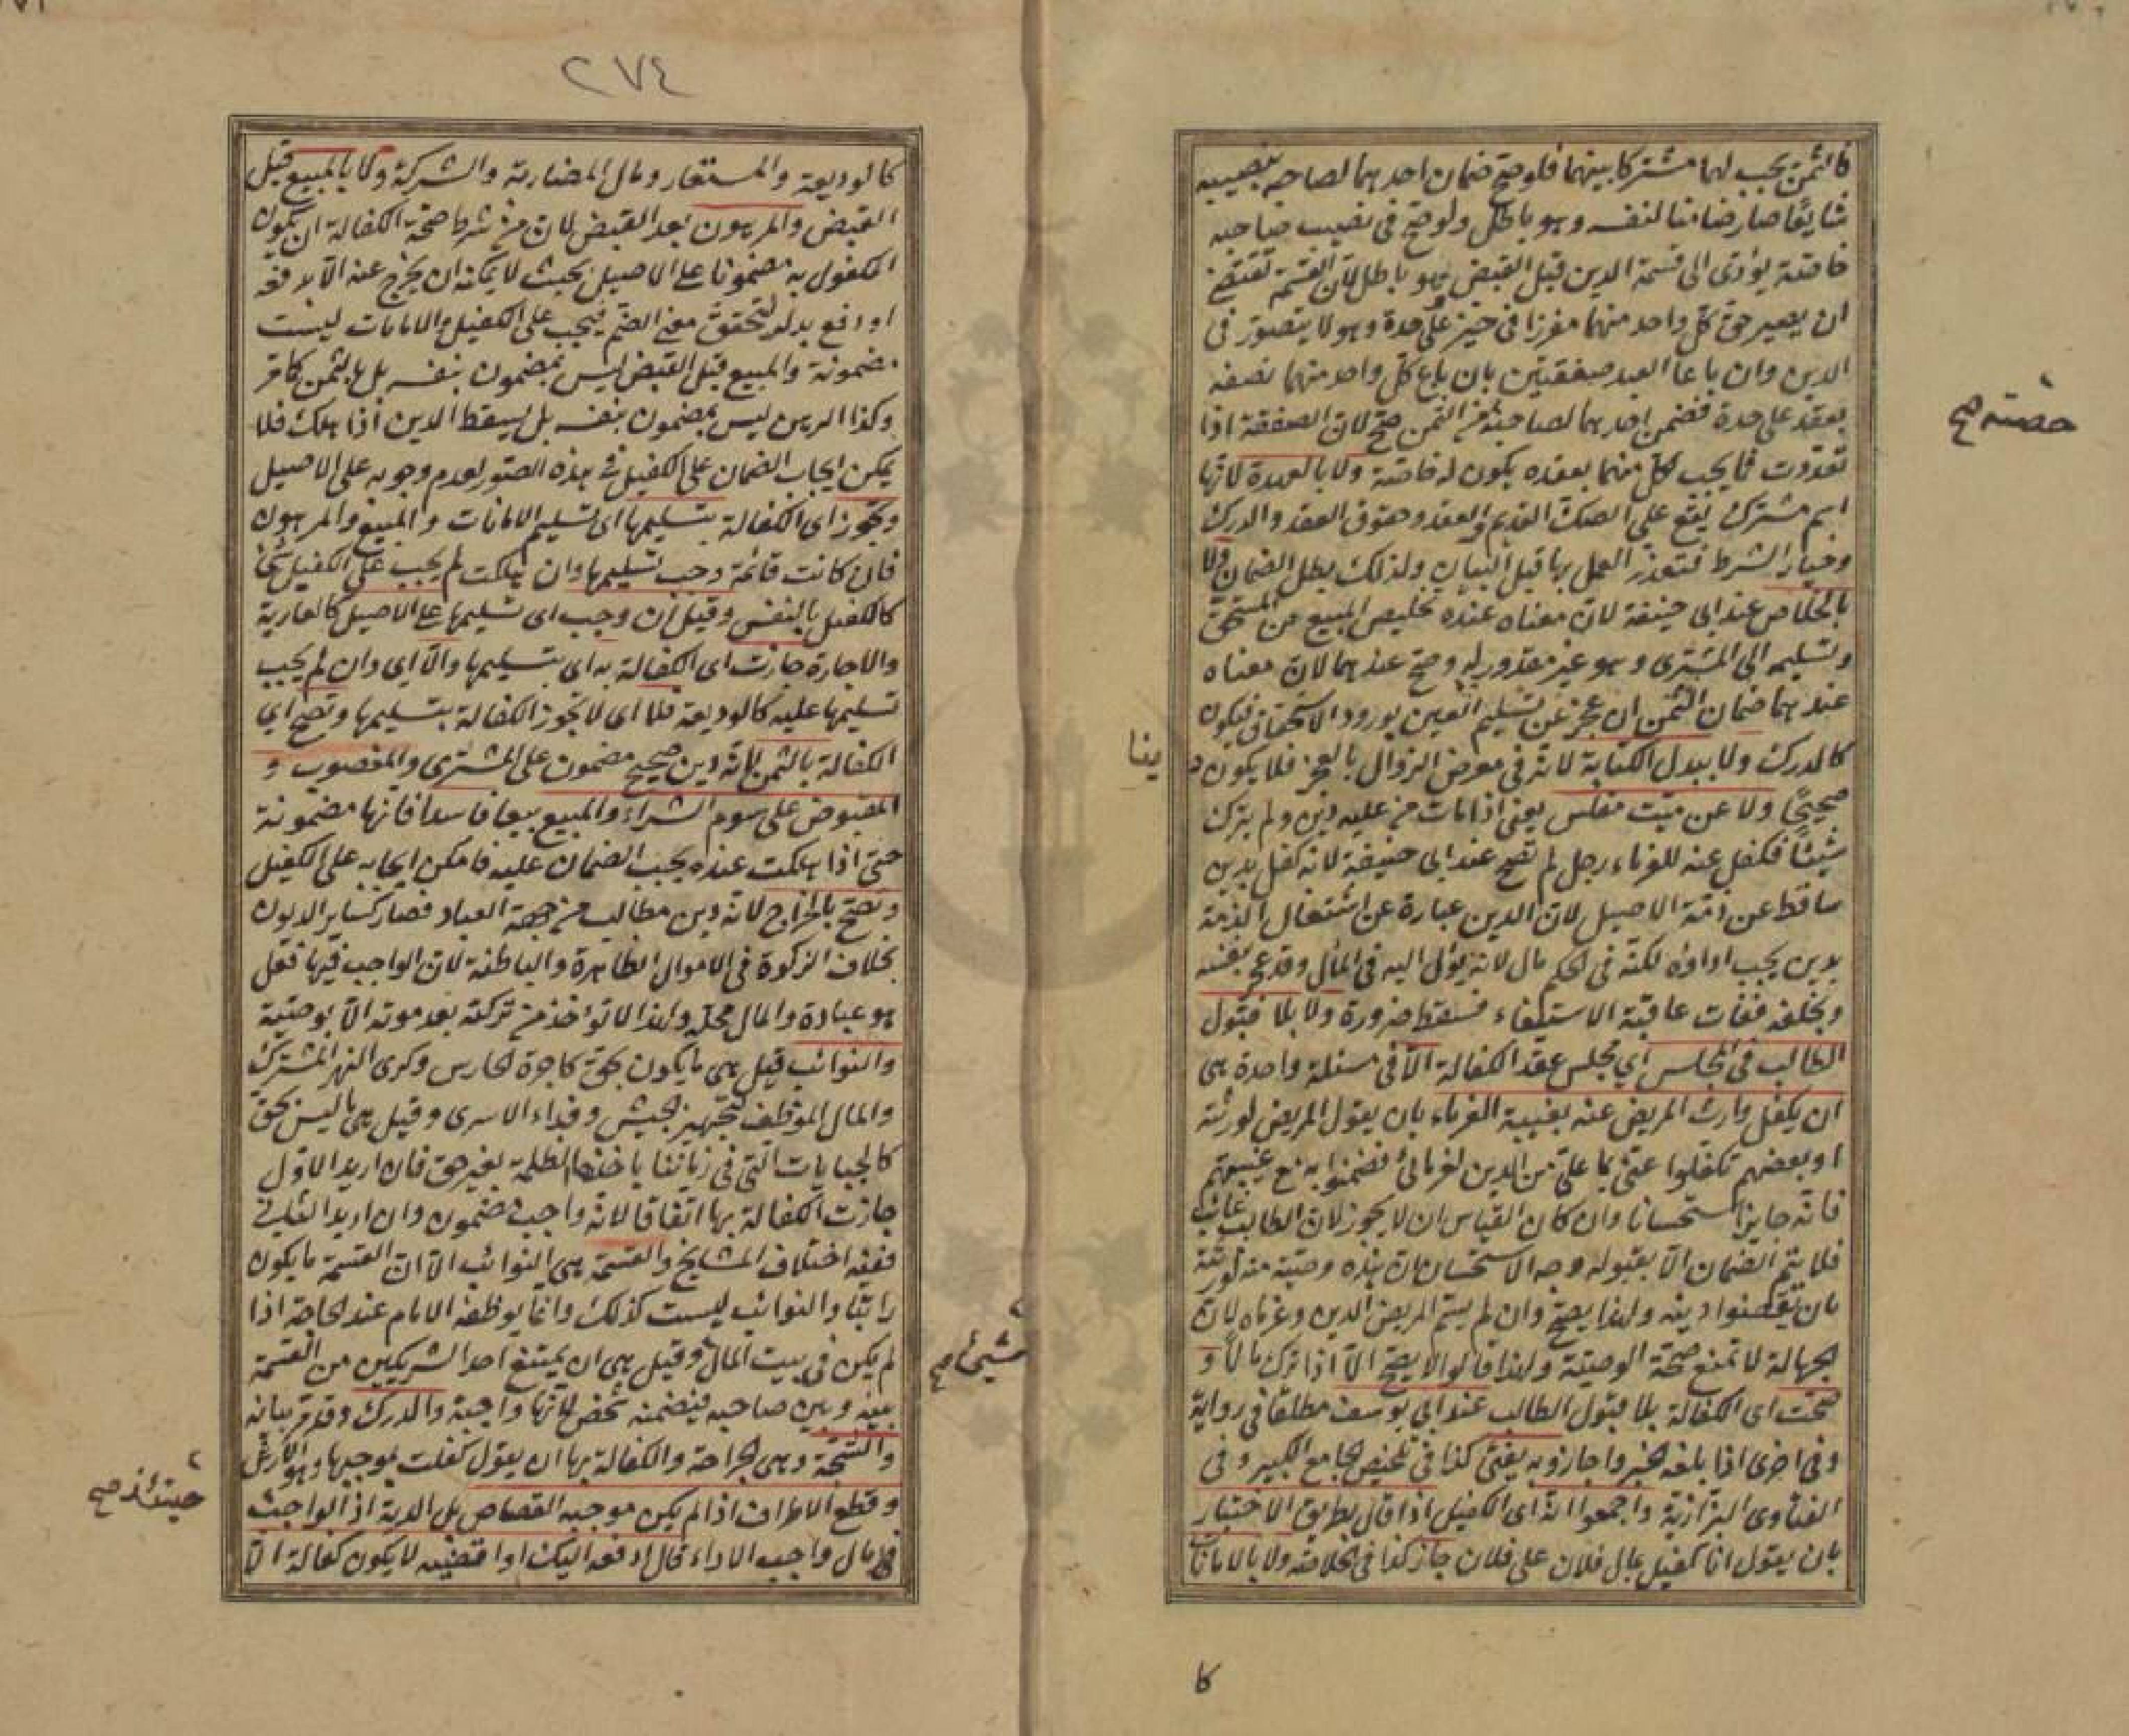 فالثمن يجب لهما مشتركا بينهما فلو صح ضمان احدهما لصاحبه بنصيبه
شايعًا صار ضامنا لنفسه وهو باطل ولو صح فى نصيب صاحبه
خاصة يؤدى الى قسمة الدين قبل القبض وهو باطل لان القسمة تقتضى
ان يصير حق كل واحد منهما مفرزا فى حيز على حدة وهو لا يتصور فى
الدين وان باعا العبد صفقتين بان باع كل واحد منهما نصفه
بعقد على حدة فضمن احدهما لصاحبه من الثمن صح لان الصفقة اذا
تعددت فما يجب لكل منهما بعقده يكون له خاصة ولا بالعهدة لانها
اسم مشترك يقع على الصك القديم والعقد وحقوق العقد والدرك
وخيار الشرط فتعذر العمل بها قبل البيان ولذلك يبطل الضمان ولا
بالخلاص عند ابى حنيفة لان معناه عنده تخليص المبيع من المستحق
وتسليمه الى المشترى وهو غير مقدور له وصح عندهما لان معناه
عندهما ضمان الثمن ان عجز عن تسليم العين بورود الاستحقاق فيكون
كالدرك ولا ببدل الكتابة لانه فى معرض الزوال بالعجز فلا يكون د
ينا
صحيحًا ولا عن ميت مفلس يعنى اذا مات من عليه دين ولم يترك
شيئًا فكفل عنه للغرماء رجل لم تصح عند ابى حنيفة لانه كفل بدين
ساقط عن ذمة الاصيل لان الدين عبارة عن اشتغال الذمة
بدين يجب اداؤه لكنه فى الحكم مال لانه يؤل اليه فى المآل وقد عجز بنفسه
وبخلفه ففات عاقبة الاستيفاء فسقط ضرورة ولا بلا قبول
الطالب فى المجلس اى مجلس عقد الكفالة الا فى مسئلة واحدة هى
ان يكفل وارث المريض عنه بغيبة الغرماء بان يقول المريض لورثته
او بعضهم تكفلوا عنى بما على من الدين لغرمائى فضمنوا به مع غيبتهم
فانه جايز استحسانا وان كان القياس ان لا يجوز لان الطالب غائب
فلا يتم الضمان الا بقبوله وجه الاستحسان ان هذه وصية منه لورثته
بان يقضوا دينه ولهذا يصح وان لم يسم المريض الدين وغرماه لان
الجهالة لا تمنع صحة الوصية ولهذا قالوا لا يصح الا اذا ترك مالاً و
صحت اى الكفالة بلا قبول الطالب عند ابى يوسف مطلقا فى رواية
وفى اخرى اذا بلغه الخبر واجاز وبه يفتى كذا فى تلخيص الجامع الكبير وفى
الفتاوى البزازية واجمعوا انه اى الكفيل اذا قال بطريق الاخبار
بان يقول انا كفيل بمال فلان على فلان جاز كذا فى الخلاصة ولا بالامانات
حصته صح
كا
٢٧٤
كالوديعة والمستعار ومال المضاربة والشركة وكا بالمبيع قبل
القبض والمرهون بعد القبض لان من شرط صحة الكفالة ان يكون
المكفول به مضمونا على الاصيل بحيث لا يمكنه ان يخرج عنه الا بدفعه
او دفع بدله لتحقق معنى الضم فيجب على الكفيل والامانات ليست
بمضمونة والمبيع قبل القبض ليس بمضمون بنفسه بل بالثمن كما مر
وكذا الرهن ليس بمضمون بنفسه بل يسقط الدين اذا هلك فلا
يمكن ايجاب الضمان على الكفيل فى هذه الصور لعدم وجوبه على الاصيل
وتجوز اى الكفالة بتسليمها اى تسليم الامانات والمبيع والمرهون
فان كانت قائمة وجب تسليمها وان هلكت لم يجب على الكفيل
كالكفيل بالنفس وقيل ان وجب اى تسليمها على الاصيل كالعارية
والاجارة جازت اى الكفالة به اى بتسليمها والا اى وان لم يجب
تسليمها عليه كالوديعة فلا اى لا تجوز الكفالة بتسليمها وتصح اى
الكفالة بالثمن لانه دين صحيح مضمون على المشترى والمغصوب و
المقبوض على سوم الشراء والمبيع بيعا فاسدا فانها مضمونة
حتى اذا هلكت عنده يجب الضمان عليه فامكن ايجابه على الكفيل
وتصح بالخراج لانه دين مطالب من جهة العباد فصار كساير الديون
بخلاف الزكوة فى الاموال الظاهرة والباطنة لان الواجب فيها فعل
هو عبادة والمال محله ولهذا لا تؤخذ من تركته بعد موته الا بوصية
والنوائب قيل هى ما يكون بحق كاجرة الحارس وكرى النهر المشترك
والمال الموظف لتجهيز الجيش وفداء الاسرى وقيل هى ما ليس بحق
كالجبايات التى فى زماننا ياخذها الظلمة بغير حق فان اريد الاول
جازت الكفالة بها اتفاقا لانه واجب مضمون وان اريد الثانى
ففيه اختلاف المشايخ والقسمة هى النوائب الا ان القسمة ما يكون
راتبا والنوائب ليست كذلك وانما يوظفه الامام عند الحاجة اذا
لم يكن فى بيت المال وقيل هى ان يمتنع احد الشريكين من القسمة
بينه وبين صاحبه فيضمنه شخص لانها واجبة والدرك وقد مر بيانه
والشجة وهى الجراحة والكفالة بها ان يقول كفلت بموجبها وهو الارش
وقطع الاطراف اذا لم يكن موجبه القصاص بل الدية اذ الواجب
مال واجب الاداء قال ادفعه اليك او اقضيه لا يكون كفالة الا
شئ صح
حينئذ صح